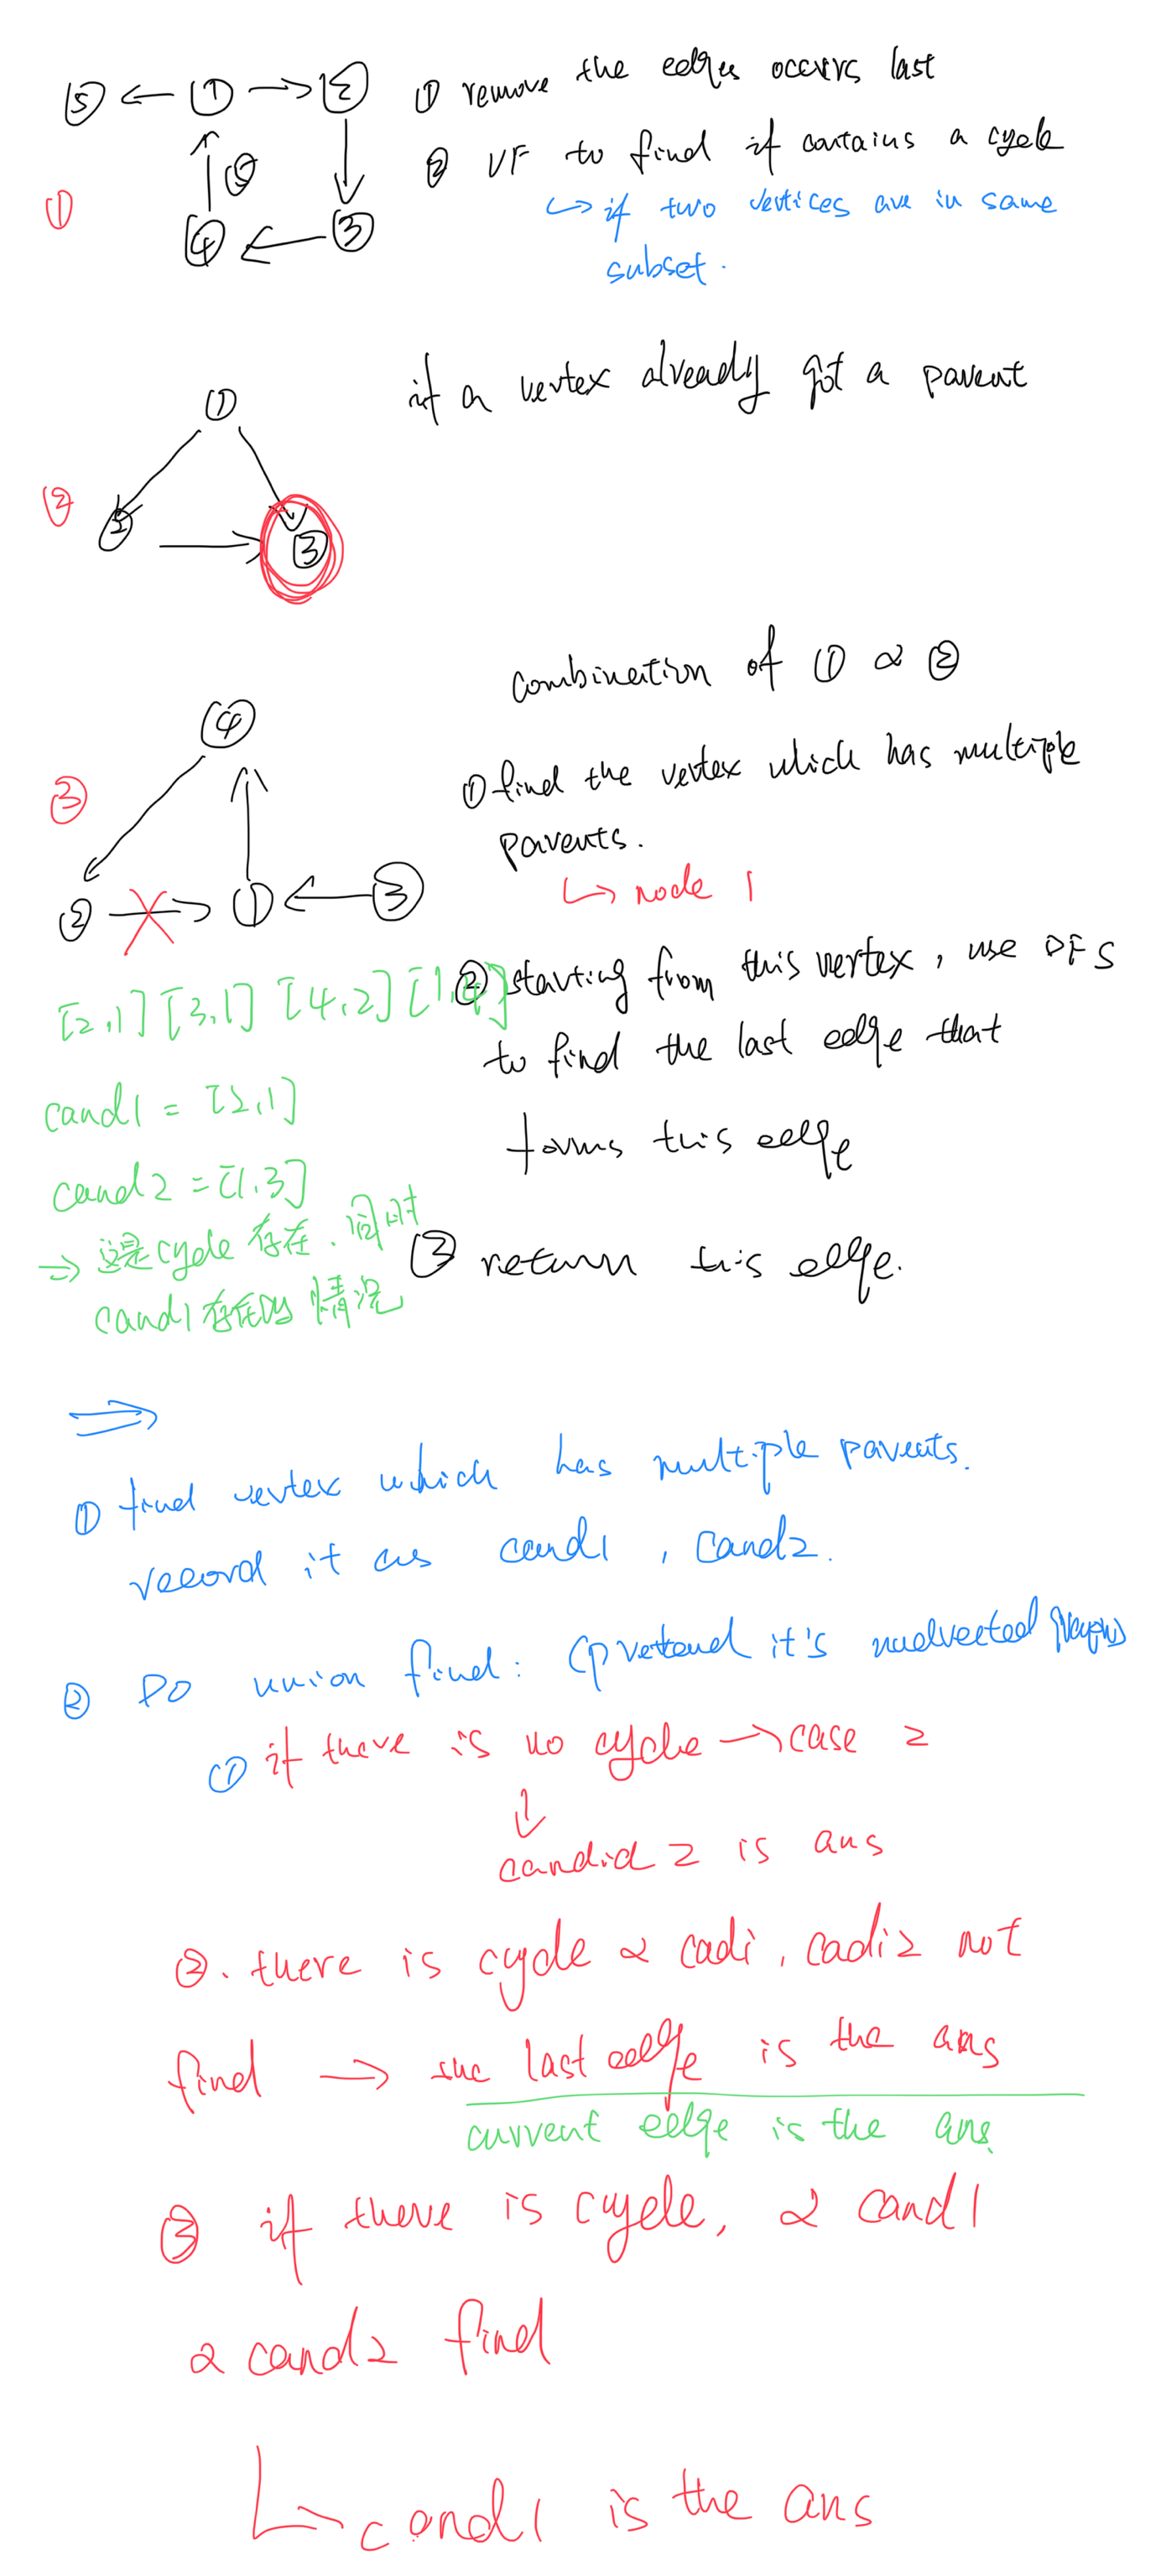 ① ⑤ ← ① → ②
④ ← ③
① remove the edges occurs last
② UF to find if contains a cycle
↳ if two vertices are in same
subset.
②
①
② → ③
if a vertex already got a parent
③
④
② → ① ← ③
combination of ① & ②
① find the vertex which has multiple
parents.
↳ node 1
② starting from this vertex, use DFS
to find the last edge that
forms this edge
③ return this edge.
[2,1] [3,1] [4,2] [1,4]
cand1 = [2,1]
cand2 = [1.3]
→ 这是cycle存在.同时
cand1存在的情况
⇒
① find vertex which has multiple parents.
record it as cand1, cand2.
② Do union find: (pretend it's undirected graph)
① if there is no cycle → case 2
↓
candid 2 is ans
②. there is cycle & cadi, cadi2 not
find → the last edge is the ans
current edge is the ans.
③ if there is cycle, & cand1
& cand2 find
↳ cand1 is the ans